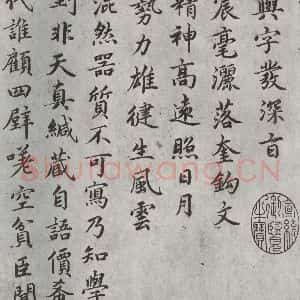 興字發深百
宸毫灑落奎鈎文
精神高遠照日月
勢力雄健生風雲
混然器質不可寫乃知學
到非天真緘藏自語價希
代誰顧四壁嗟空貧臣聞
Shufawang.CN